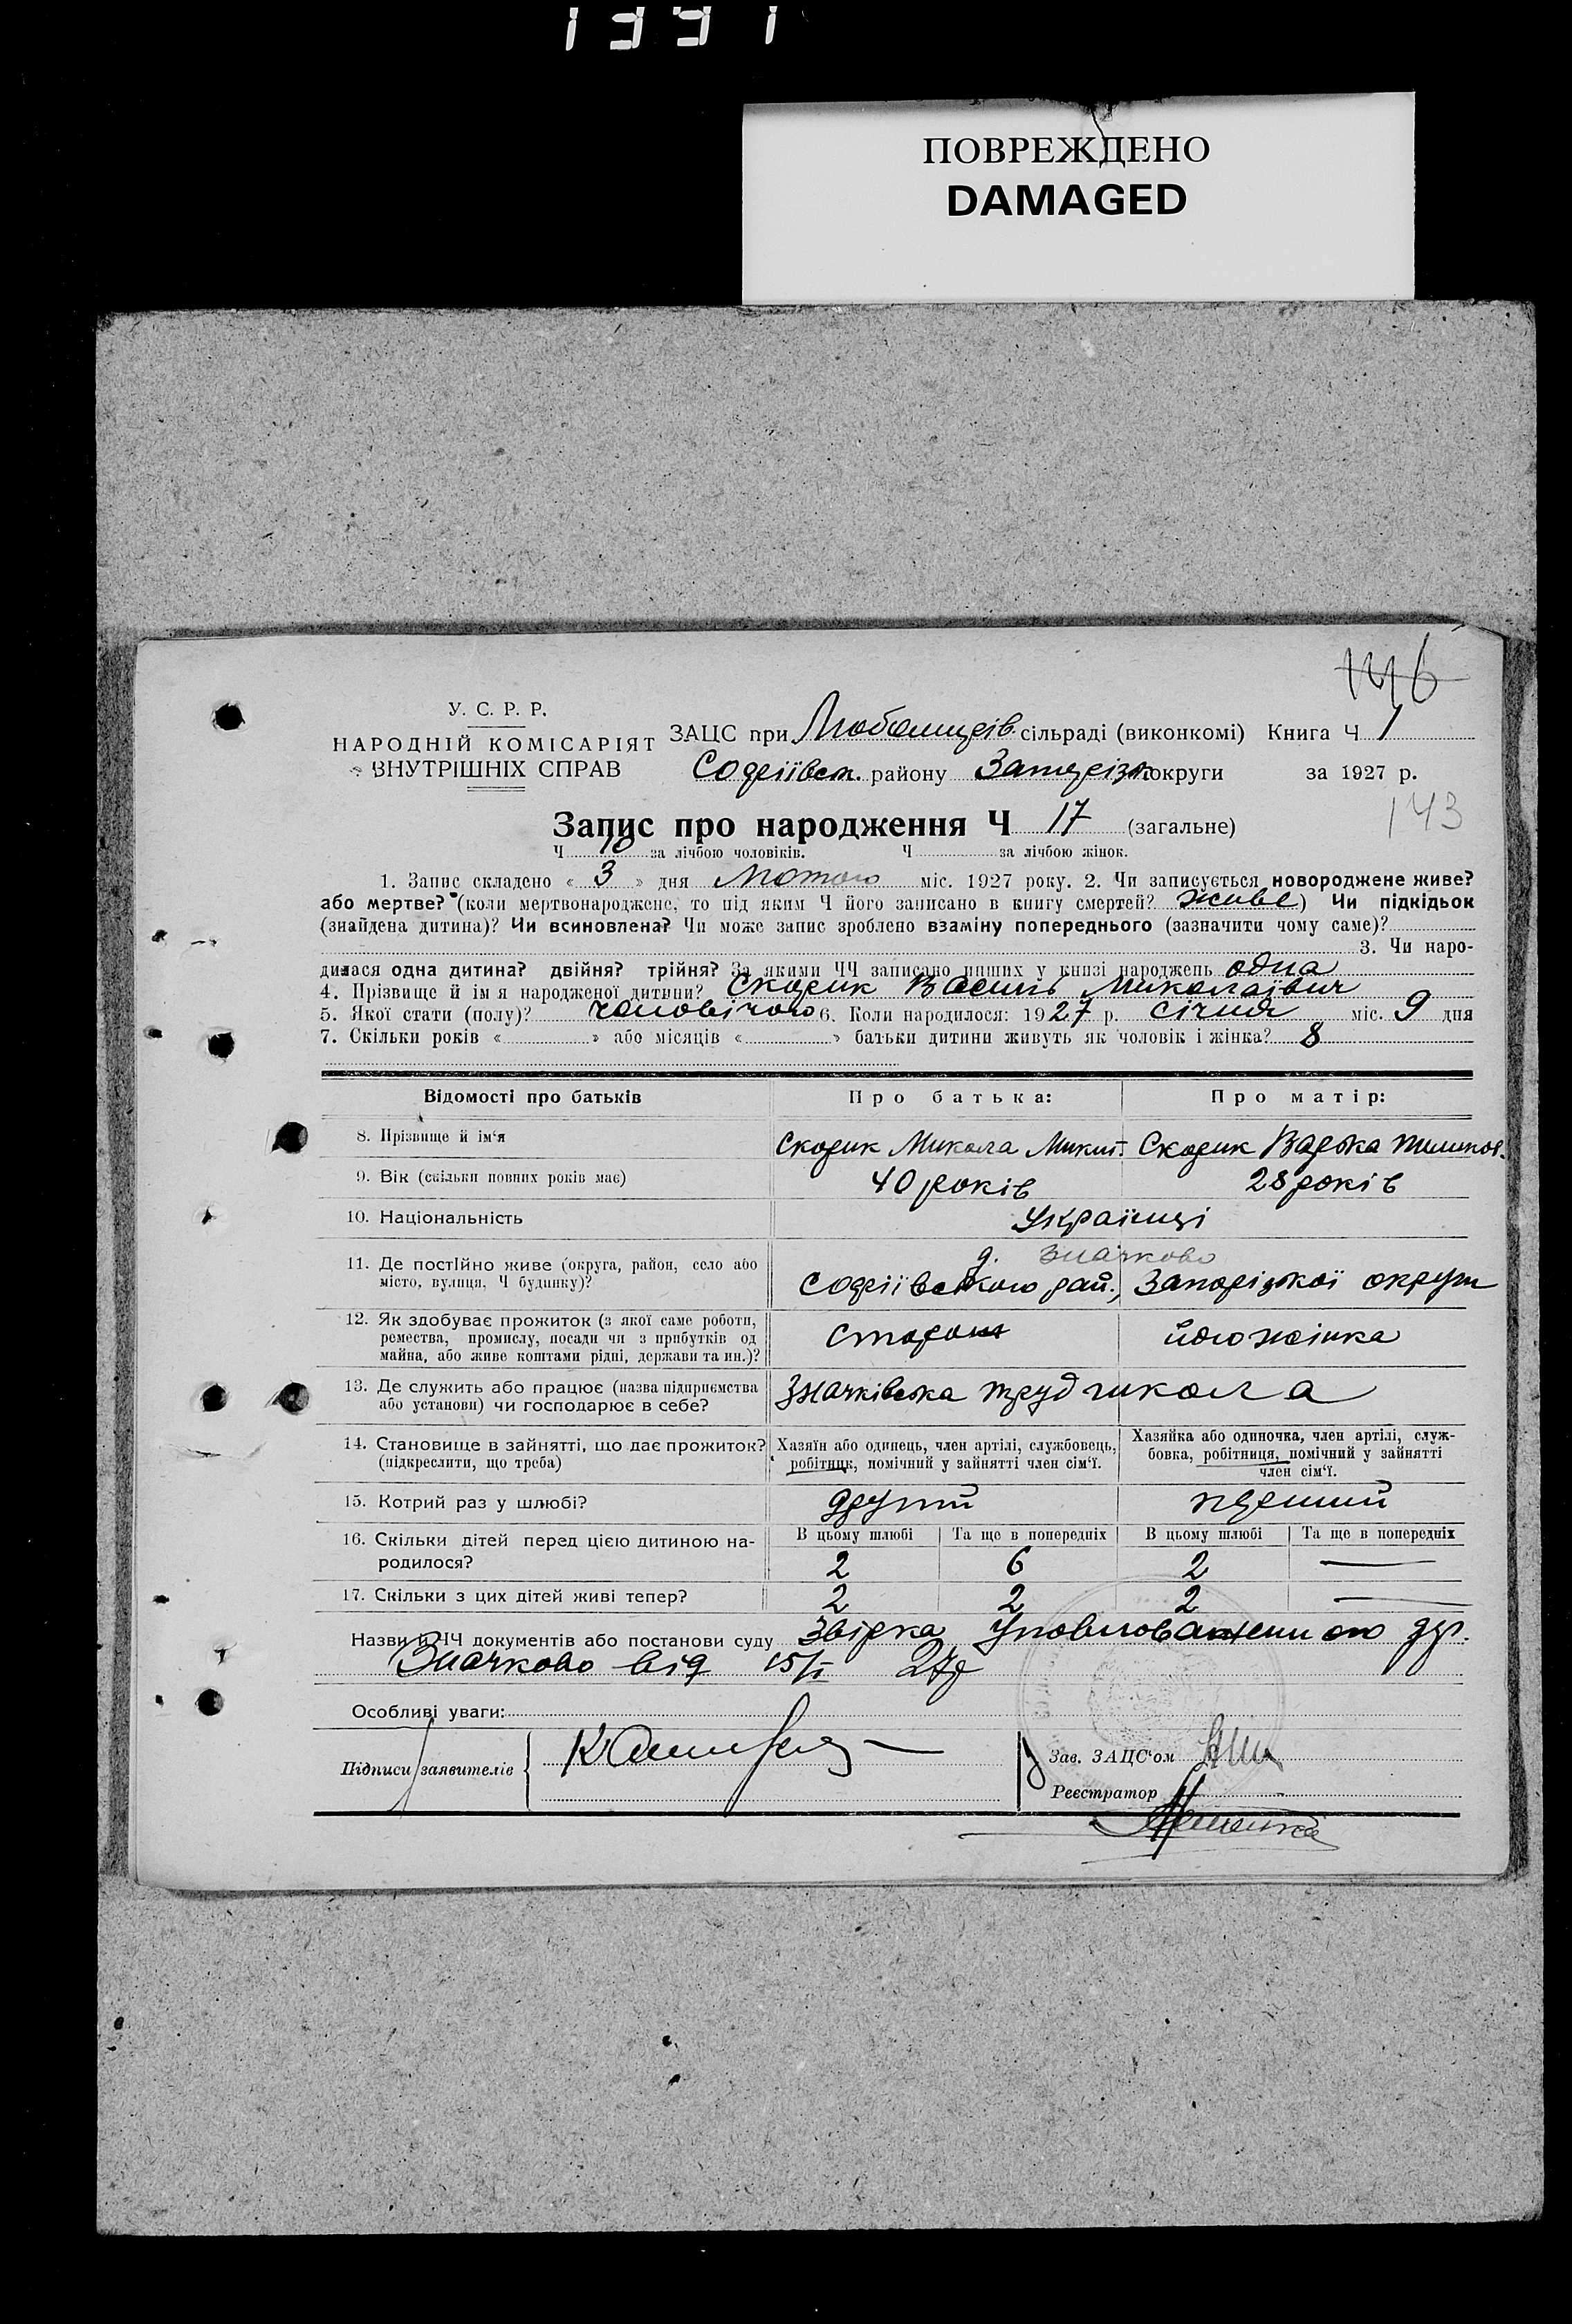 1331
ПОВРЕЖДЕНО
DAMAGED
146
У. С. Р. Р.
НАРОДНІЙ КОМІСАРІЯТ
ВНУТРІШНІХ СПРАВ
ЗАЦС при Любомирів. сільраді (виконкомі) Книга Ч 1
Софіївськ. району Запорізьк округи за 1927 р.
143
Запис про народження Ч 17 (загальне)
Ч 10 за лічбою чоловіків. Ч за лічбою жінок.
1. Запис складено « 3 » дня Лютого міс. 1927 року. 2. Чи записується новороджене живе?
або мертве? (коли мертвонароджене, то під яким Ч його записано в книгу смертей? живе) Чи підкідьок
(знайдена дитина)? Чи всиновлена? Чи може запис зроблено взаміну попереднього (зазначити чому саме)?
3. Чи наро-
дилася одна дитина? двійня? трійня? За якими ЧЧ записано инших у книзі народжень одна
4. Прізвище й ім я народженої дитини? Скорик Василь Миколаївич
5. Якої стати (полу)? чоловічого 6. Коли народилося: 1927 р. січня міс. 9 дня
7. Скільки років « » або місяців « » батьки дитини живуть як чоловік і жінка? 8
Відомості про батьків Про батька: Про матір:
8. Прізвище й ім‘я Скорик Микола Микит. Скорик Варька
9. Вік (скільки повних років має) 40 років 28 років
10. Національність Українці
11. Де постійно живе (округа, район, село або
місто, вулиця, Ч будинку)?
д. Значково
Софіївського рай., Запорізької округи
12. Як здобуває прожиток (з якої саме роботи,
ремества, промислу, посади чи з прибутків од
майна, або живе коштами рідні, держави та ин.)?
сторож його жінка
13. Де служить або працює (назва підприємства
або установи) чи господарює в себе?
Значківська трудшкола
14. Становище в зайнятті, що дає прожиток?
(підкреслити, що треба)
Хазяїн або одинець, член артілі, службовець,
робітник, помічний у зайнятті член сім‘ї.
Хазяйка або одиночка, член артілі, служ-
бовка, робітниця, помічний у зайнятті
член сім‘ї.
15. Котрий раз у шлюбі? другий перший
16. Скільки дітей перед цією дитиною на-
родилося?
В цьому шлюбі Та ще в попередніх В цьому шлюбі Та ще в попередніх
2 6 2 —
17. Скільки з цих дітей живі тепер? 2 2 2 —
Назви й ЧЧ документів або постанови суду Звірка Уповноваженного дер.
Значково від 15/I 27р
Особливі уваги:
Підписи заявителів
Зав. ЗАЦС‘ом
Реєстратор